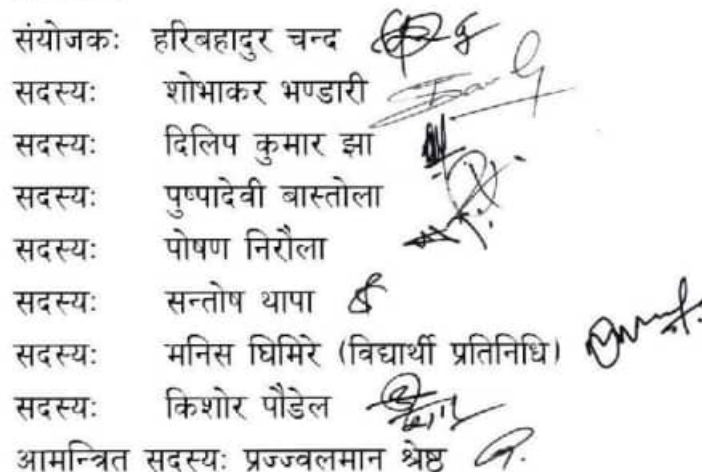 संयोजकः हरिबहादुर चन्द
सदस्यः शोभाकर भण्डारी
सदस्यः दिलिप कुमार झा
सदस्यः पुष्पादेवी बास्तोला
सदस्यः पोषण निरौला
सदस्यः सन्तोष थापा
सदस्यः मनिस घिमिरे (विद्यार्थी प्रतिनिधि)
सदस्यः किशोर पौडेल
आमन्त्रित सदस्यः प्रज्ज्वलमान श्रेष्ठ